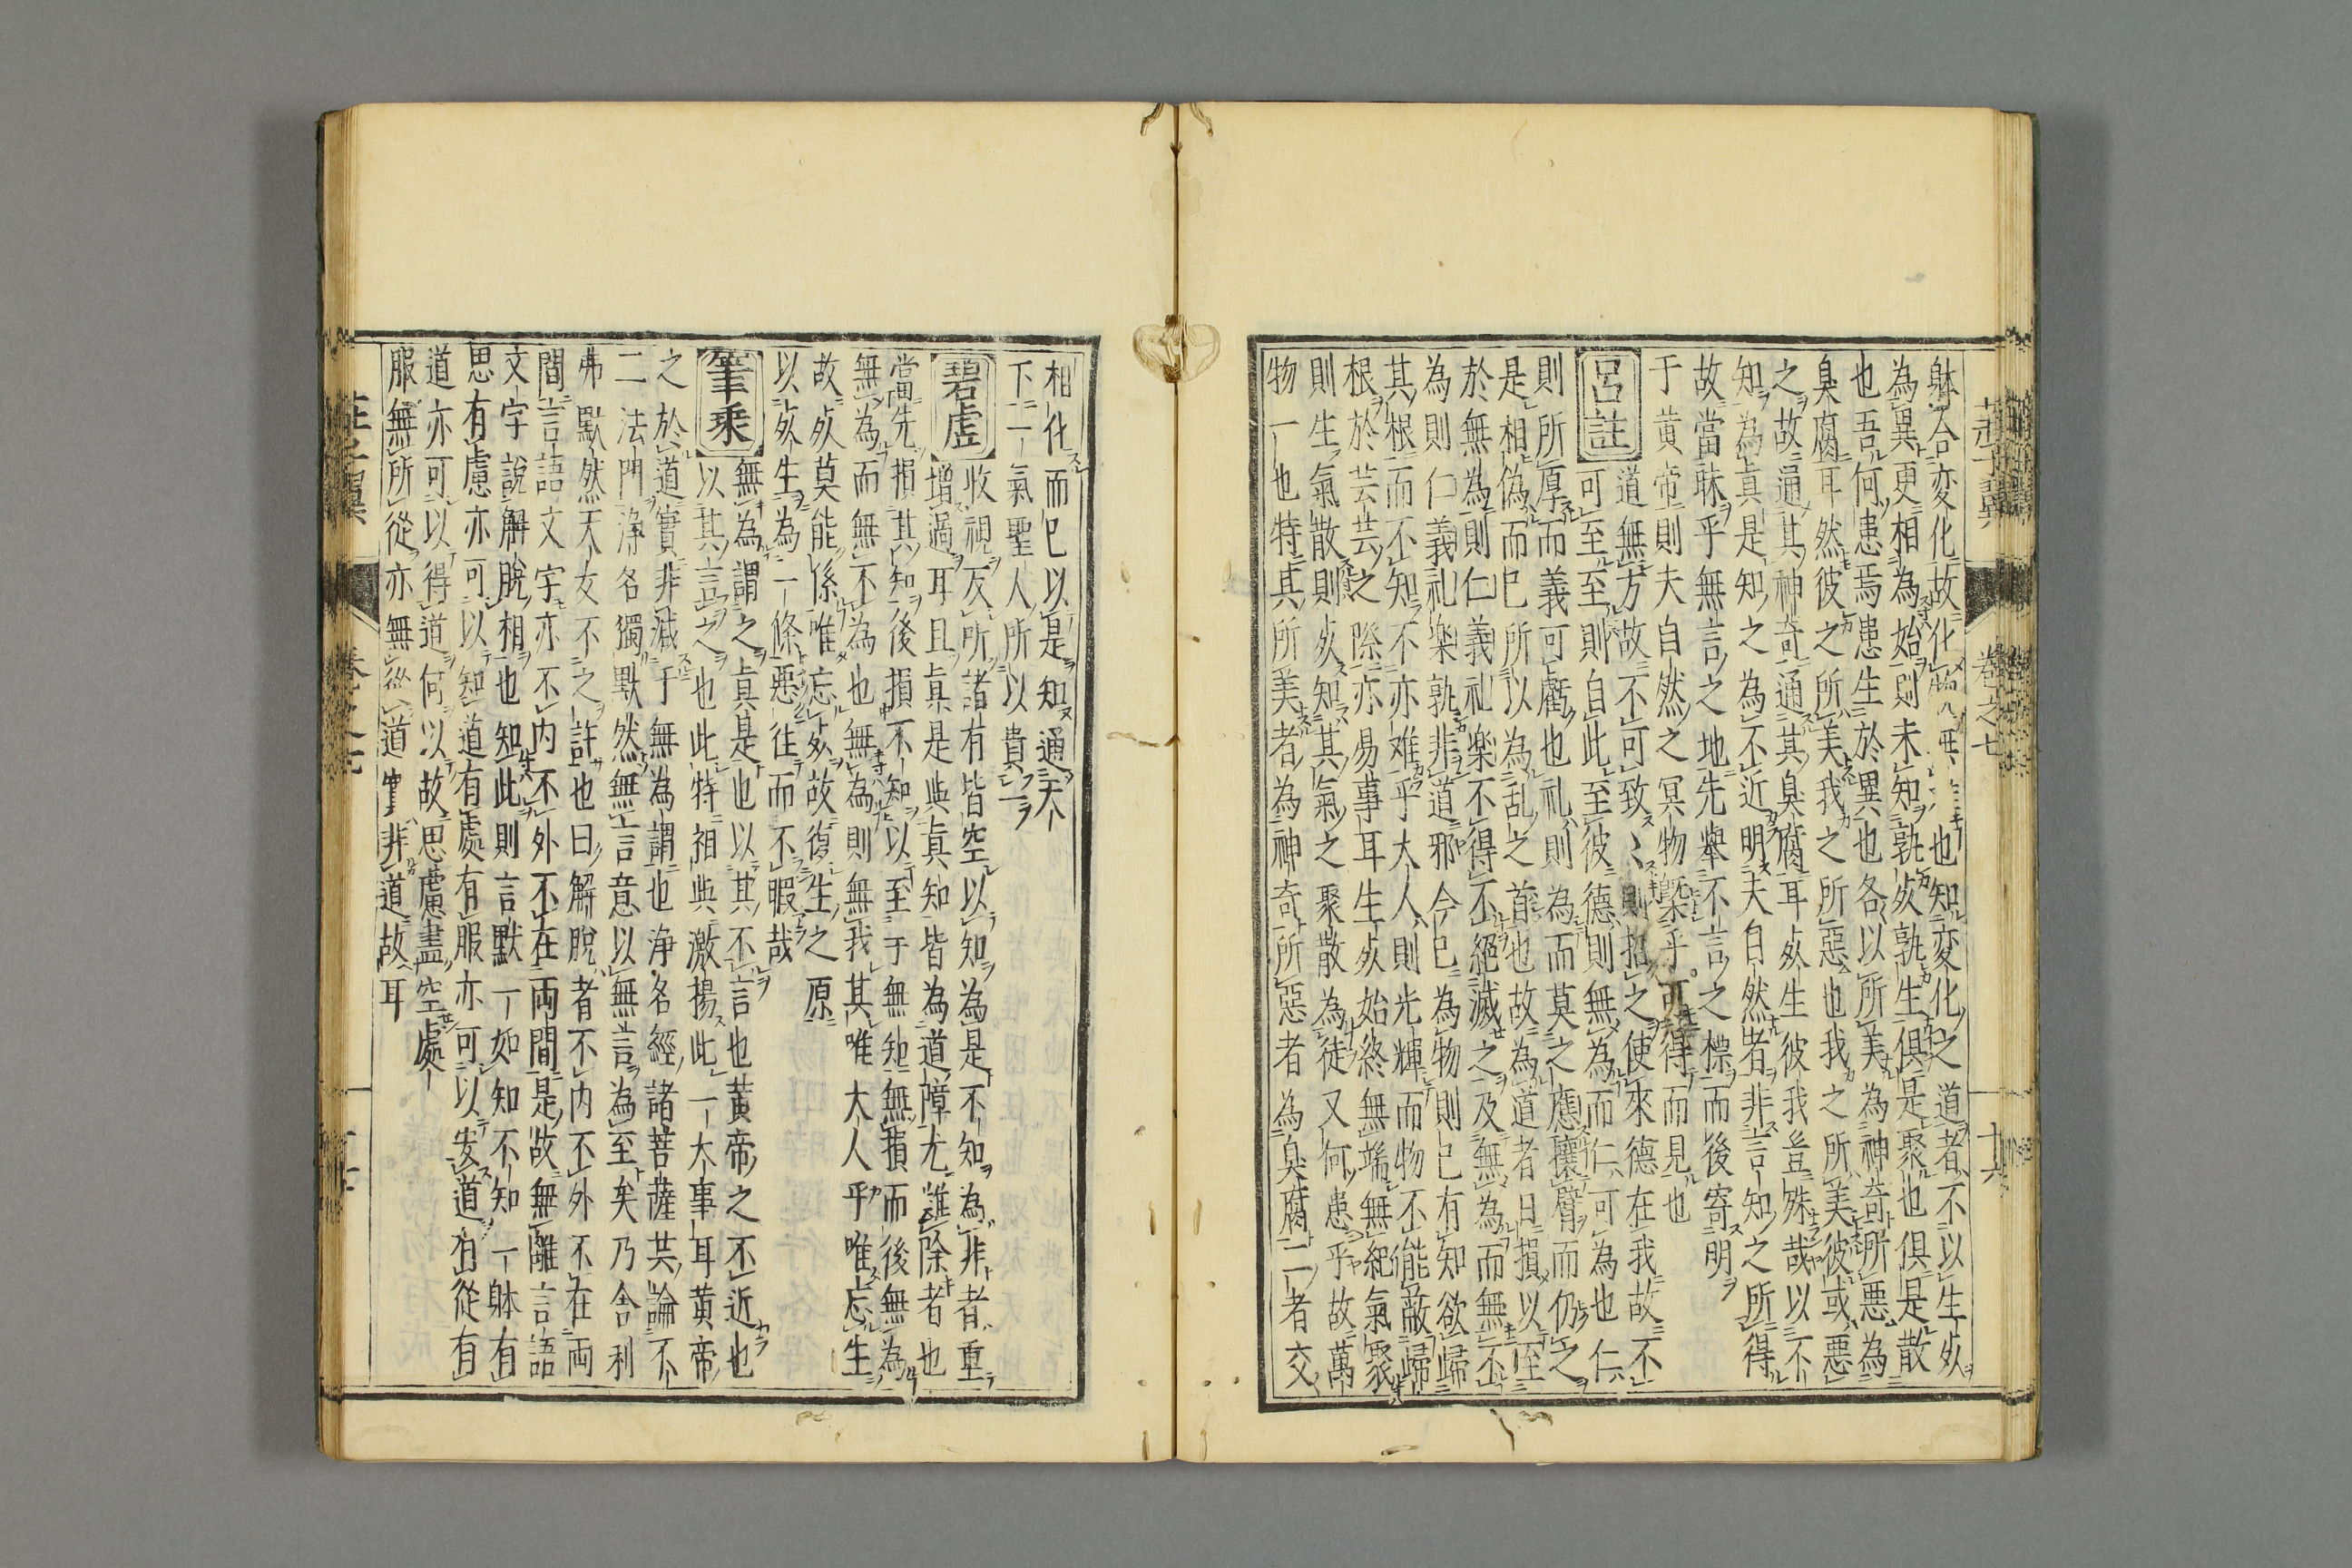 莊子翼 卷之七 十六
躰合変化故化也知変化之道者不以生死
為異更相為始則未知孰死孰生俱是聚也俱是散
也吾何患焉患生於異也各以所美為神奇所惡為
臭腐耳然彼之所美我之所惡也我之所美彼或惡
之故通其神奇通其臭腐耳死生彼我豈殊哉以不
知為真是知之為不近明夫自然者非言知之所得
故當昧乎無言之地先舉不言之標而後寄明
于黄帝則夫自然之冥物槩乎可得而見也
呂註
道無方故不可致〻則招之使來德在我故不
可至至則自此至彼德則無為而仁可為也仁
則所厚而義可虧也礼則為而莫之應攘臂而仍之
是相偽而已所以為乱之首也故為道者日損以至
於無為則仁義礼楽不得不絕滅之及無為而無不
為則仁義礼楽孰非道邪今已為物則已有知欲歸
其根而不知不亦难乎大人則光輝而物不能敵歸
根於芸芸之際亦易事耳生死始終無端無紀氣聚
則生氣散則死知其氣之聚散為徒又何患乎故萬
物一也特其所美者為神奇所惡者為臭腐二者交
相化而已以是知通天
下一氣聖人所以貴一
碧虛
收視反所諸有皆空以知為是不知為非者重
增過耳且真是與真知皆為道障尤難除者也
當先損其知後損不知以至于無知無損而後無為
無為而無不為也無為則無我其唯大人乎唯忘生
故死莫能係唯忘死故復生之原
以死生為一條惡往而不暇哉
筆乗
無為謂之真是也以其不言也黄帝之不近也
以其言之也此特祖與激揚此一大事耳黄帝
之於道實非滅于無為謂也浄名經諸菩薩共論不
二法門浄名獨默然無言意以無言為至矣乃舎利
弗默然天女不之許也曰解脱者不内不外不在両
間言語文字亦不内不外不在両間是故無離言語
文字說解脱相也知此則言默一如知不知一躰有
思有慮亦可以知道有處有服亦可以安道有從有
道亦可以得道何以故思慮盡空處
服無所從亦無從道實非道故耳